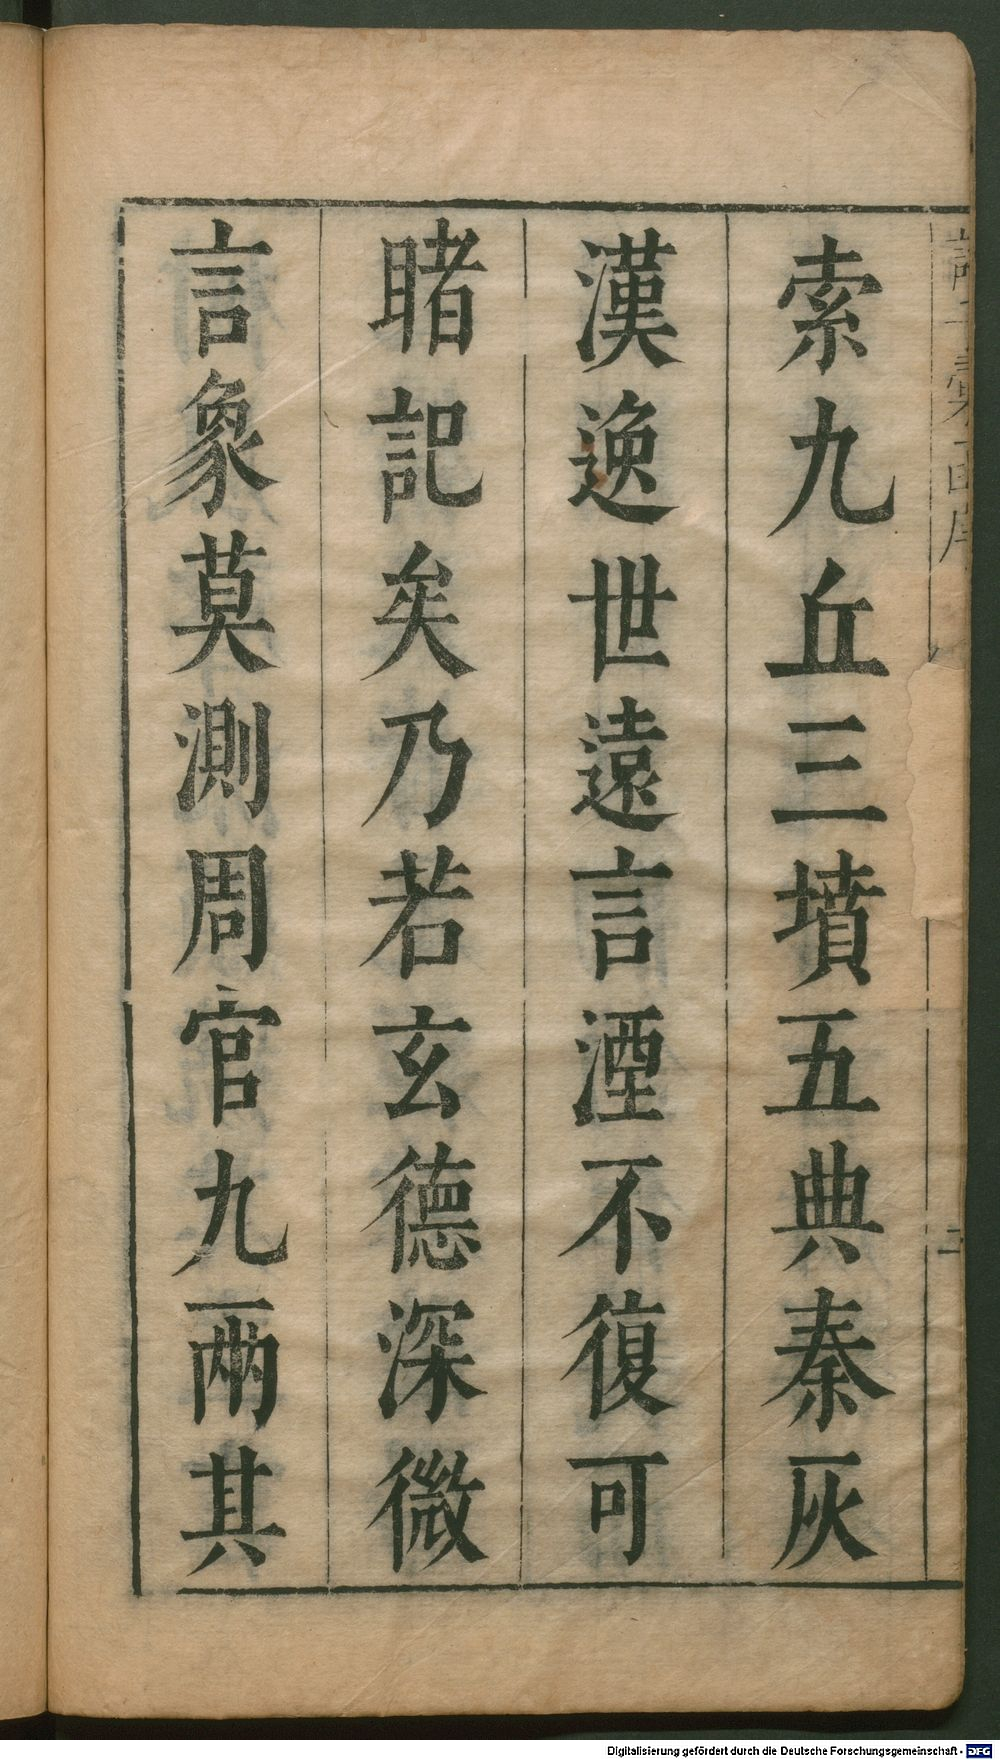 索九丘三墳五典秦灰
漢逸世遠言湮不復可
睹記矣乃若玄德深微
言象莫測周官九兩其
二
Digitalisierung gefördert durch die Deutsche Forschungsgemeinschaft - DFG